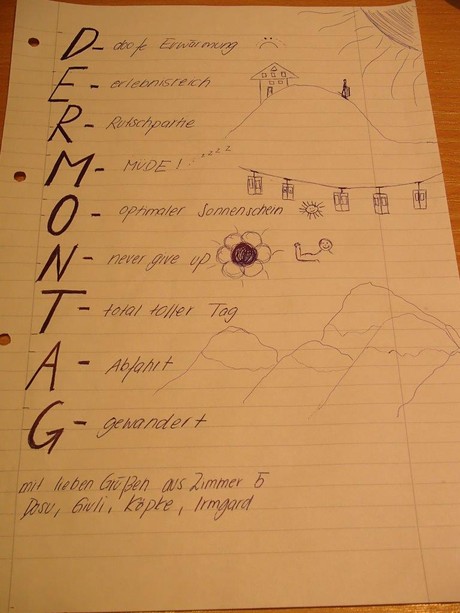 D- doofe Erwärmung
E- erlebnisreich
R- Rutschpartie
M- MÜDE! zzzz
O- optimaler Sonnenschein
N- never give up
T- total toller Tag
A- Abfahrt
G- gewandert
mit lieben Grüßen aus Zimmer 5
Dosu, Giuli, Köpke, Irmgard